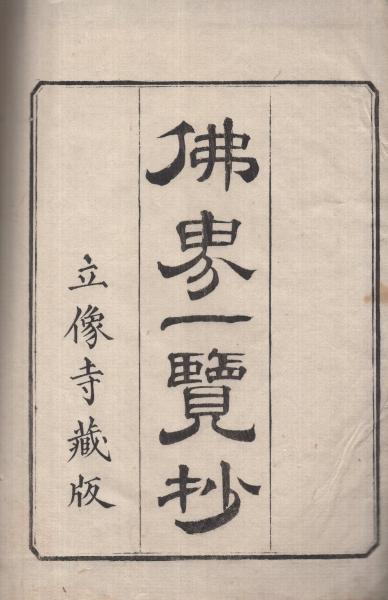 佛界一覽抄
立像寺藏版